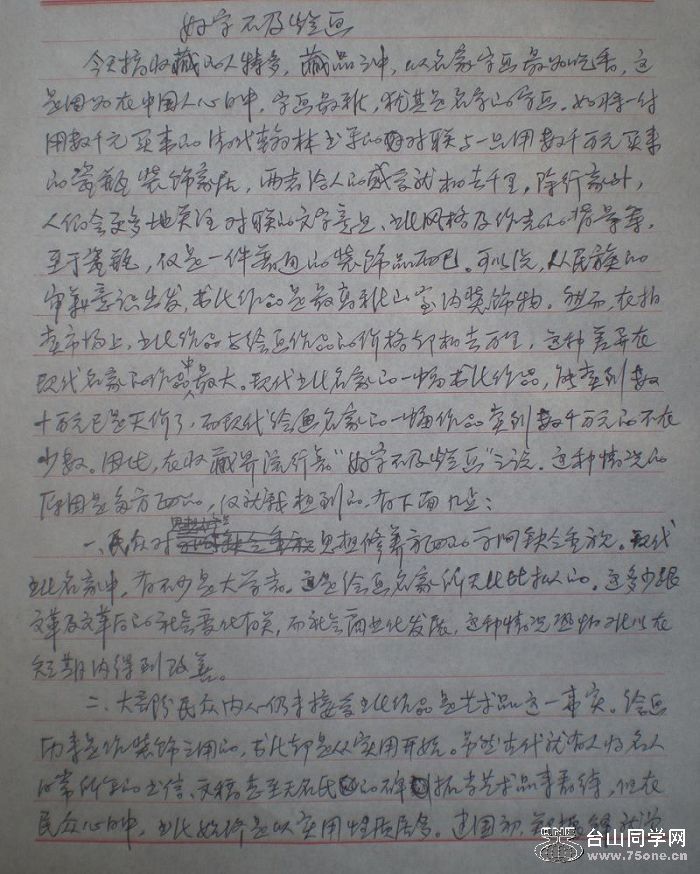 好字不及烂画
今天搞收藏的人特多，藏品之中，以名家字画最为吃香，这
是因为在中国人心目中，字画最雅，尤其是名家的字画。如将一付
用数千元买来的清代翰林书写的对联与一只用数千万元买来
的瓷瓶装饰家居，两者给人的感官就相去千里，除行家外，
人们会更多地关注对联的文字意思、书法风格及作者的背景等，
至于瓷瓶，仅是一件普通的装饰品而已。可以说，从民族的
审美意识出发，书法作品是最高雅的室内装饰物。然而，在拍
卖市场上，书法作品与绘画作品的价格却相去万里，这种差异在
现代名家的作品中最大。现代书法名家的一幅书法作品，能卖到数
十万元已是天价了，而现代绘画名家的一幅作品卖到数千万元的不在
少数。因此，在收藏界流行着“好字不及烂画”之说。这种情况的
原因是多方面的，仅就我想到的，有下面几点：
一、民众对思想修养方面的学问缺乏重视。现代
书法名家中，有不少是大学者。这是绘画名家所无法比拟的。这多少跟
文革及文革后的社会变化有关，而社会商业化发展，这种情况恐怕难以在
短期内得到改善。
二、大部份民众内心仍未接受书法作品是艺术品这一事实。绘画
历来是作装饰之用的，书法却是从实用开始。虽然古代就有人将名人
日常所写的书信、文稿甚至无名氏的碑拓当艺术品来看待，但在
民众心目中，书法始终是以实用性质居多。建国初，郑振铎就曾
台山同学网
www.75one.cn